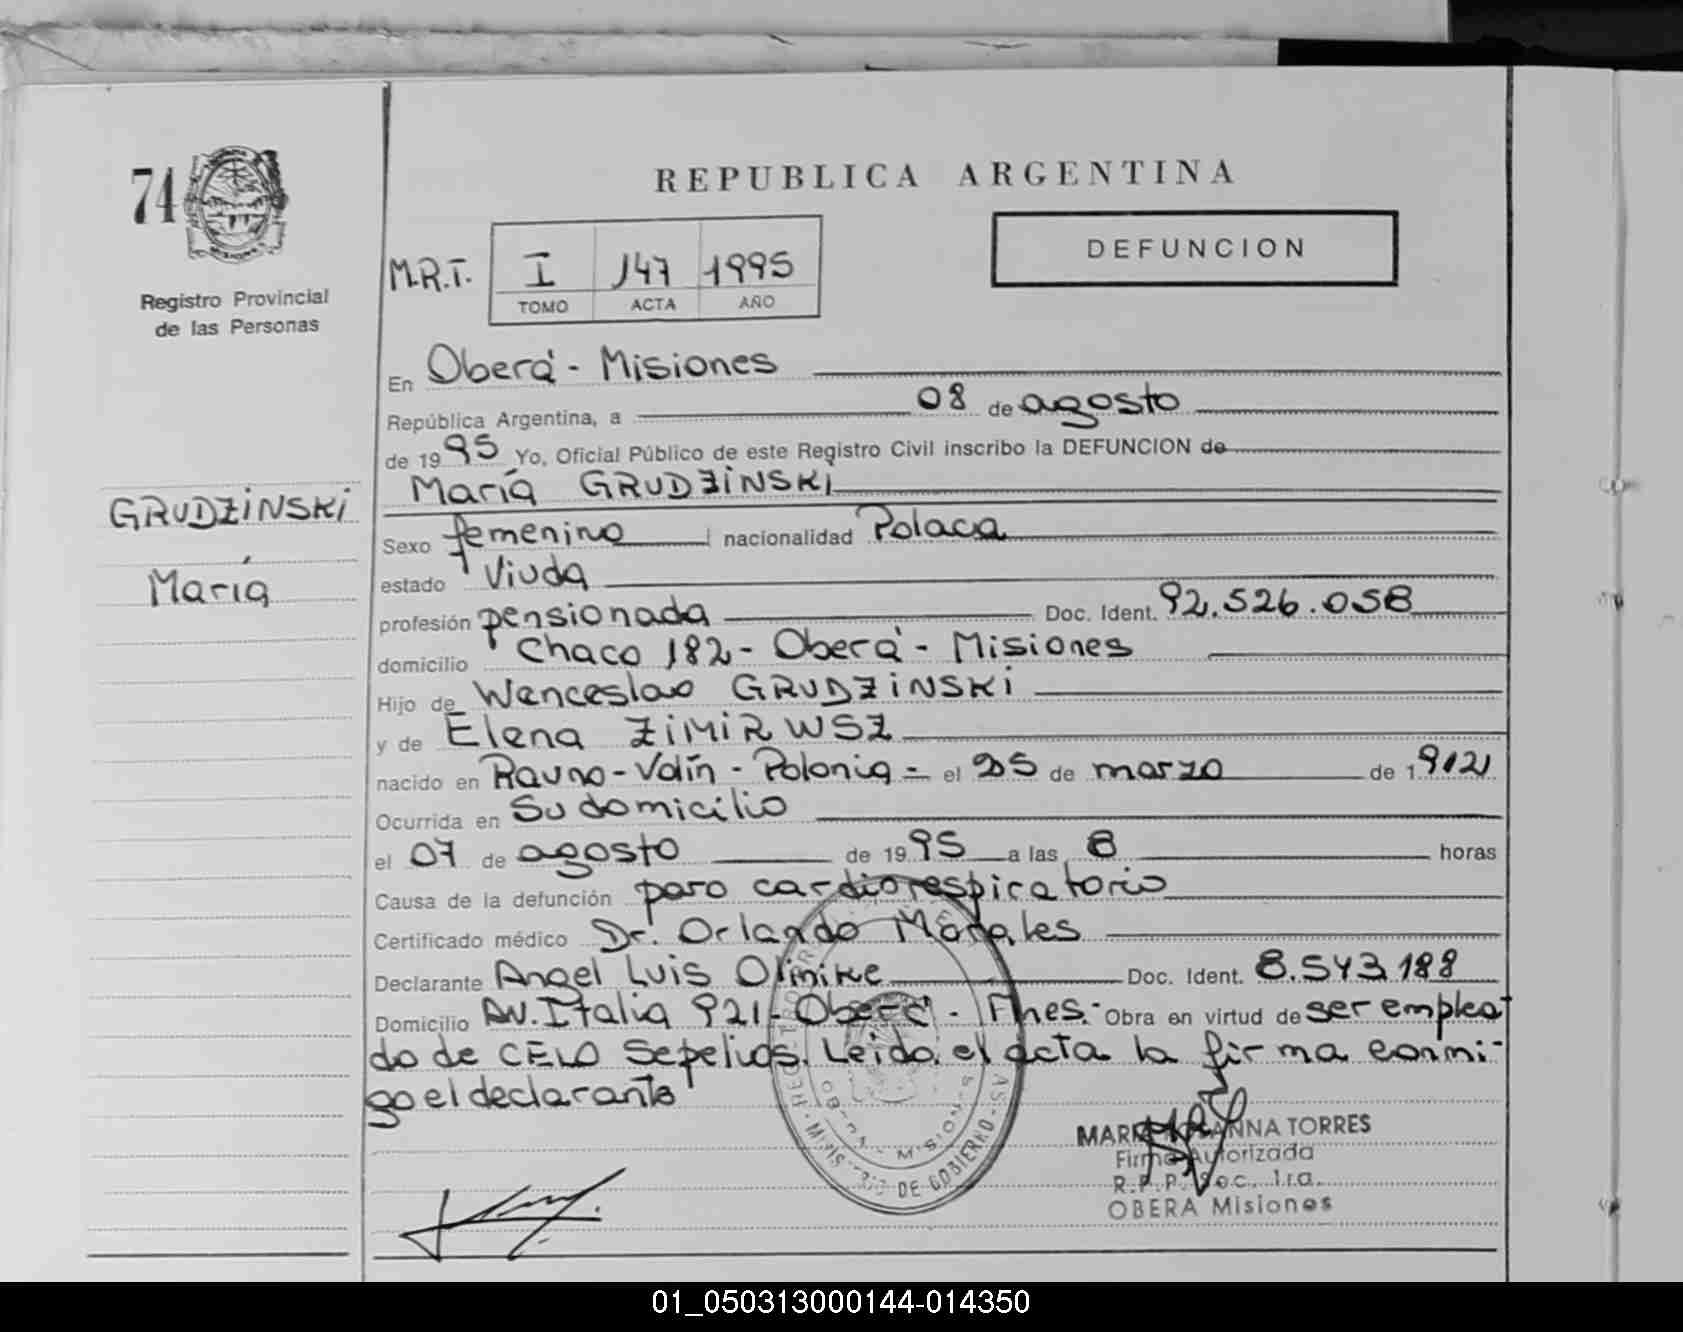 74
Registro Provincial
de las Personas
GRUDZINSKI
María
REPUBLICA ARGENTINA
DEFUNCION
M.R.T. I 147 1995
TOMO ACTA AÑO
En Oberá - Misiones
República Argentina, a 08 de agosto
de 1995 Yo, Oficial Público de este Registro Civil inscribo la DEFUNCION de
María GRUDZINSKI
Sexo femenino nacionalidad Polaca
estado Viuda
profesión pensionada Doc. Ident. 92.526.058
domicilio Chaco 182 - Oberá - Misiones
Hijo de Wenceslao GRUDZINSKI
y de Elena ZIMIRWSZ
nacido en Rauno - Volín - Polonia - el 25 de marzo de 1912
Ocurrida en Su domicilio
el 07 de agosto de 1995 a las 8 horas
Causa de la defunción paro cardiorespiratorio
Certificado médico Dr. Orlando Morales
Declarante Angel Luis Olinike Doc. Ident. 8.543.188
Domicilio Av. Italia 921 - Oberá - Mnes.- Obra en virtud de ser emplea
do de CELO Sepelios. Leido el acta la firma conmi-
go el declarante
MINISTERIO DE GOBIERNO
OBERA MISIONES
TORRES
Firma Autorizada
R.P.P. Sec. 1ra.
OBERA Misiones
01_050313000144-014350